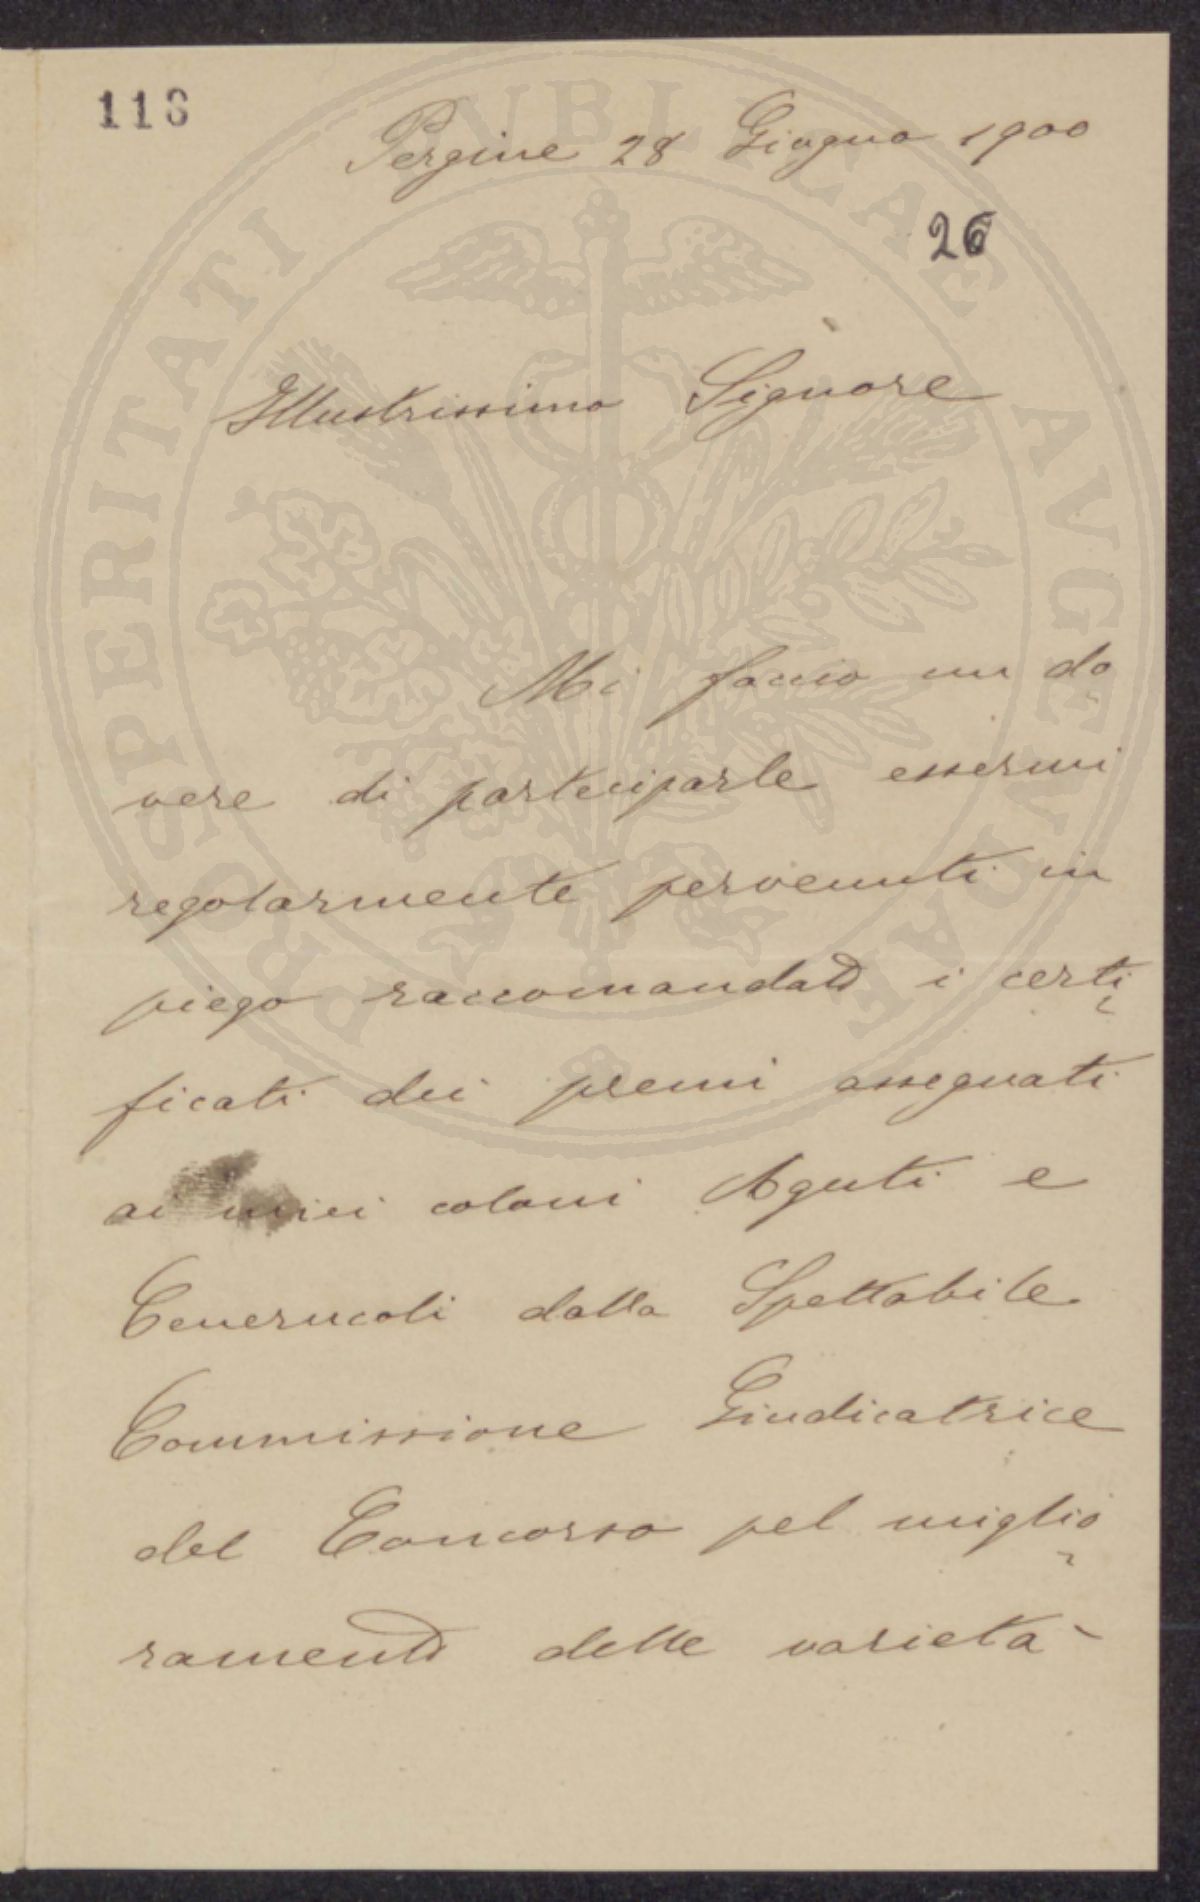 118
Pergine 28 Giugno 1900
26
Illustrissimo Signore
Mi faccio un do
vere di parteciparle essermi
regolarmente pervenuti in
piego raccomandato i certi
ficati dei premi assegnati
ai miei coloni Aguti e
Cenerucoli dalla Spettabile
Commissione Giudicatrice
del Concorso pel miglio
ramento delle varietà
PROSPERITATI PVBLICAE AVGENDAE